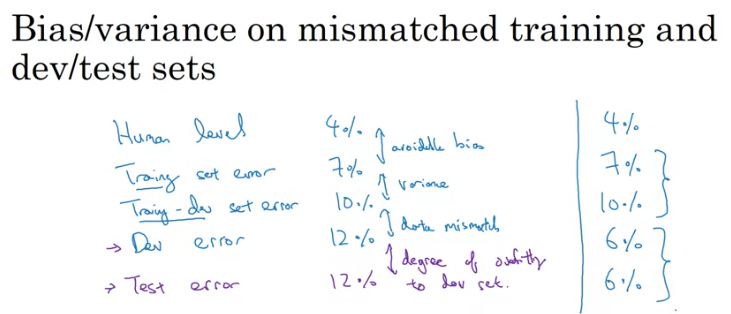 Bias/variance on mismatched training and
dev/test sets
Human level 4% 4%
avoidable bias
Training set error 7% 7%
variance
Training-dev set error 10% 10%
data mismatch
→ Dev error 12% 6%
degree of overfitting
to dev set.
→ Test error 12% 6%